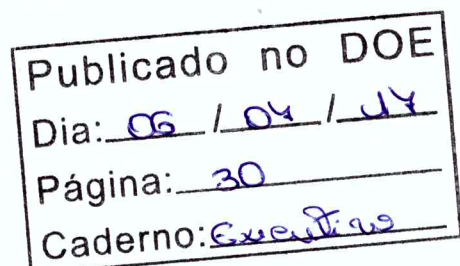 Publicado no DOE
Dia: 06 / 07 / 17
Página: 30
Caderno: Executivo